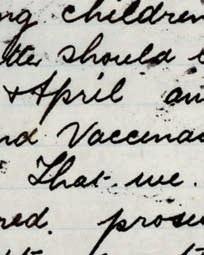 ng children
tte should
& April an
nd Vaccinat
That we
red. prosec